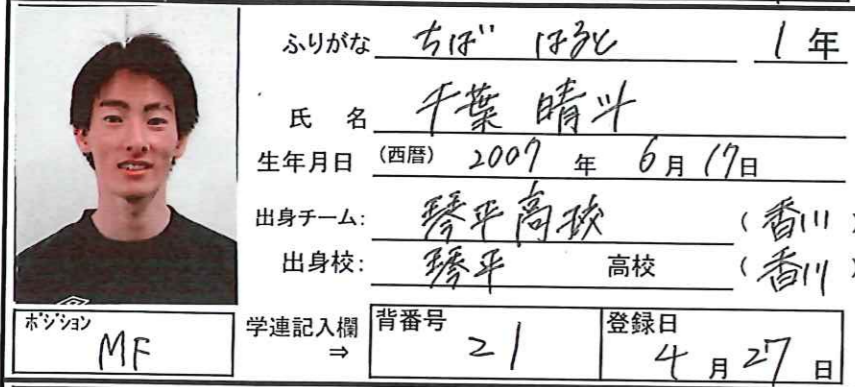 ふりがな ちば はると 1年
氏 名 千葉 晴斗
生年月日 (西暦) 2007 年 6月 17日
出身チーム: 琴平高校 (香川)
出身校: 琴平 高校 (香川)
ポジション MF
学連記入欄 ⇒
背番号 21
登録日 4 月 27 日